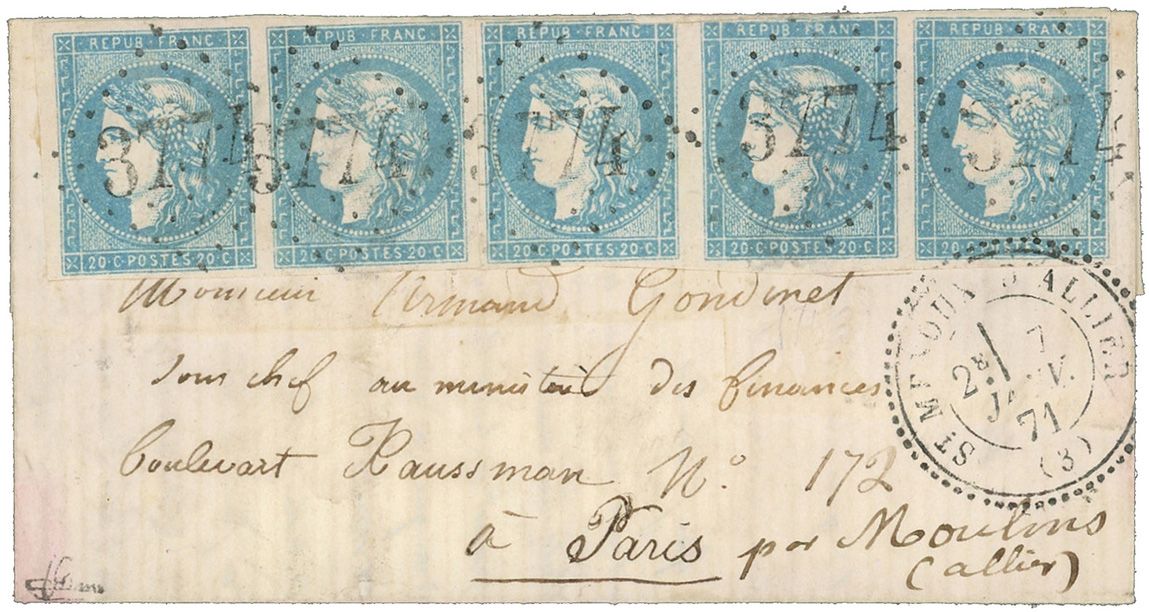 REPUB·FRANC REPUB·FRANC REPUB·FRANC REPUB·FRANC REPUB·FRANC
3774 3774 3774 3774 3774
20·C·POSTES·20·C 20·C·POSTES·20·C 20·C·POSTES·20·C 20·C·POSTES·20·C 20·C·POSTES·20·C
Monsieur Armand Gondinet
Sous chef au ministère des finances
boulevart Haussman N° 172
à Paris par Moulins
(allier)
ST MENOUX D'ALLIER
7
2e
JANV.
71
(3)